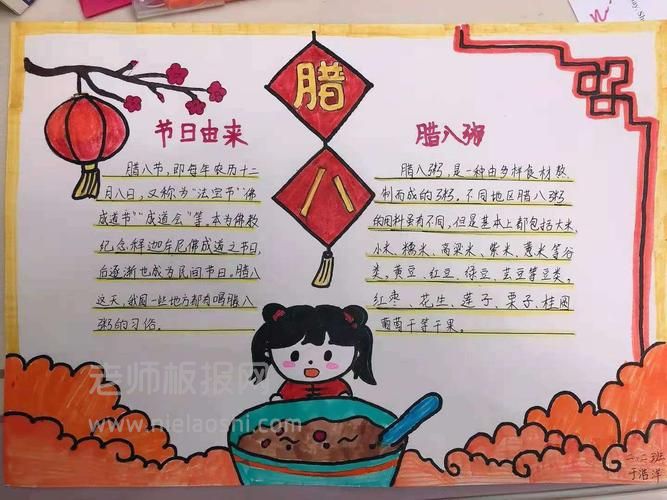 腊
八
节日由来
腊八节,即每年农历十二
月八日,又称为“法宝节”“佛
成道节”“成道会”等。本为佛教
纪念释迦牟尼佛成道之节日,
后逐渐也成为民间节日。腊八
这天,我国一些地方都有喝腊八
粥的习俗。
腊八粥
腊八粥,是一种由多样食材熬
制而成的粥。不同地区腊八粥
的用料虽有不同,但是基本上都包括大米、
小米、糯米、高梁米、紫米、薏米等谷
类,黄豆、红豆、绿豆、芸豆等豆类,
红枣、花生、莲子、栗子、桂圆
葡萄干等干果。
老师板报网
www.nielaoshi.com
二、二班
于浩洋